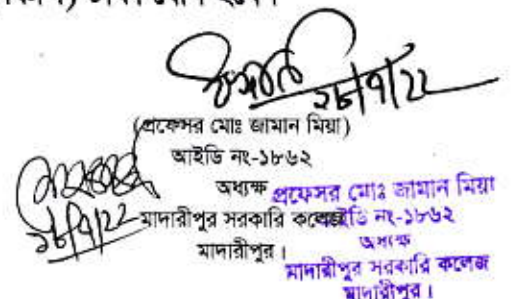 ২৮/৭/২২
(প্রফেসর মোঃ জামান মিয়া)
আইডি নং-১৮৬২
অধ্যক্ষ
মাদারীপুর সরকারি কলেজ
মাদারীপুর।
২৮/৭/২২
প্রফেসর মোঃ জামান মিয়া
আইডি নং-১৮৬২
অধ্যক্ষ
মাদারীপুর সরকারি কলেজ
মাদারীপুর।